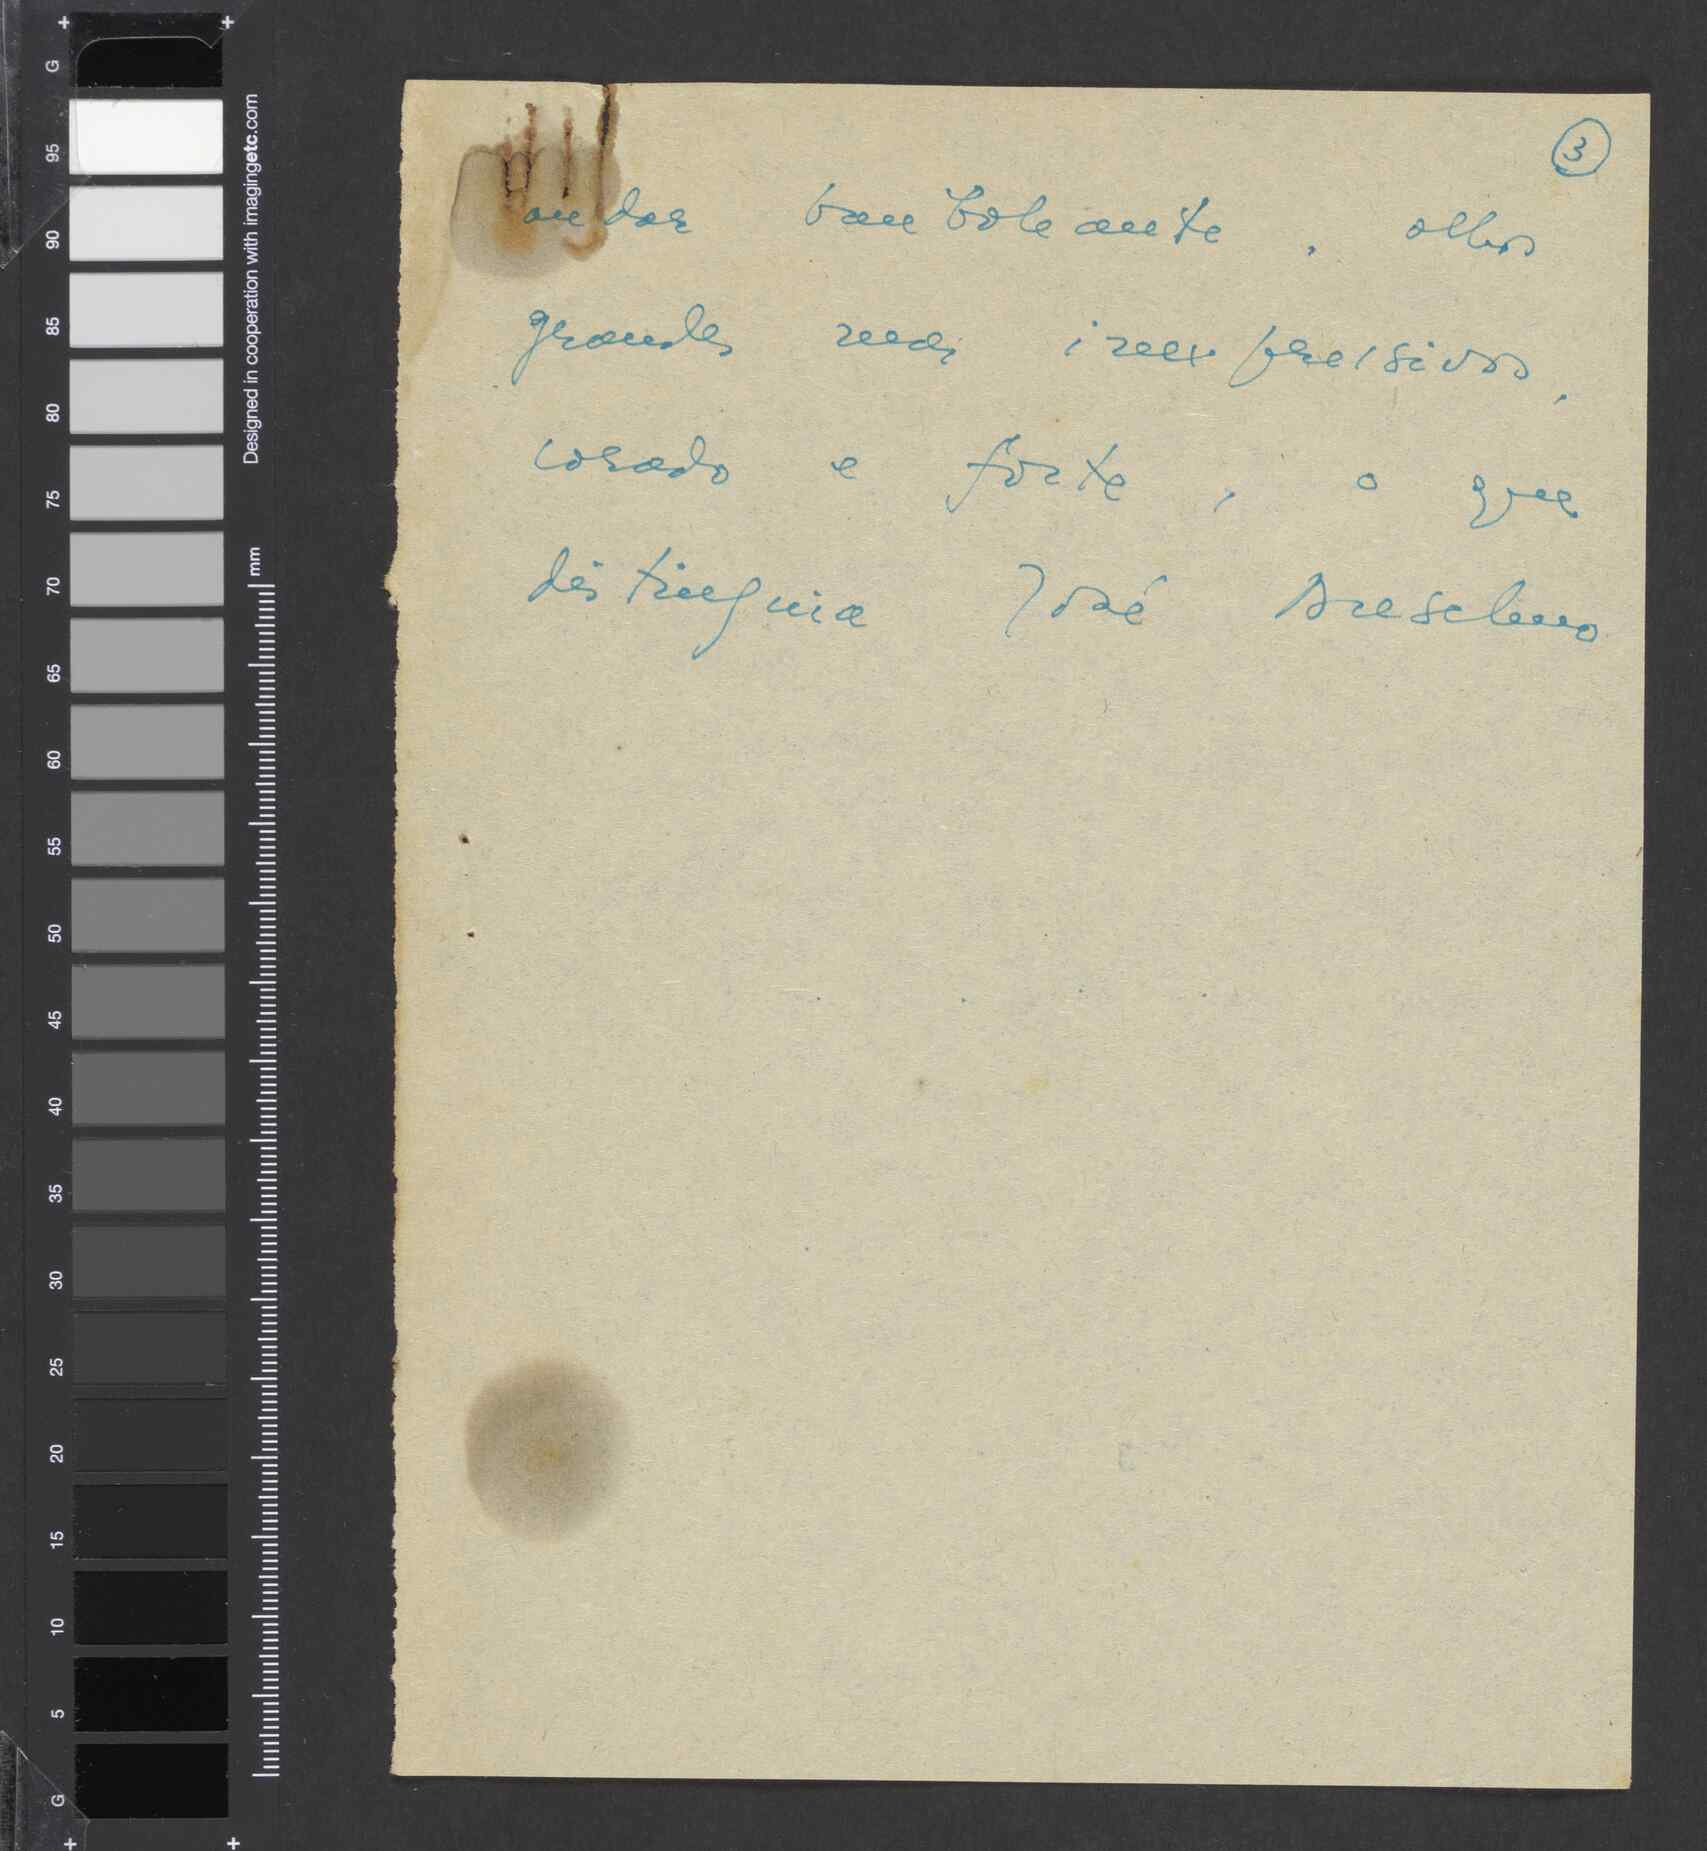 3
andar bamboleante, olhos
grandes mas inexpressivos,
corado e forte, o que
distinguia José Anselmo
Designed in cooperation with imagingetc.com
mm
G
95
90
85
80
75
70
65
60
55
50
45
40
35
30
25
20
15
10
5
G